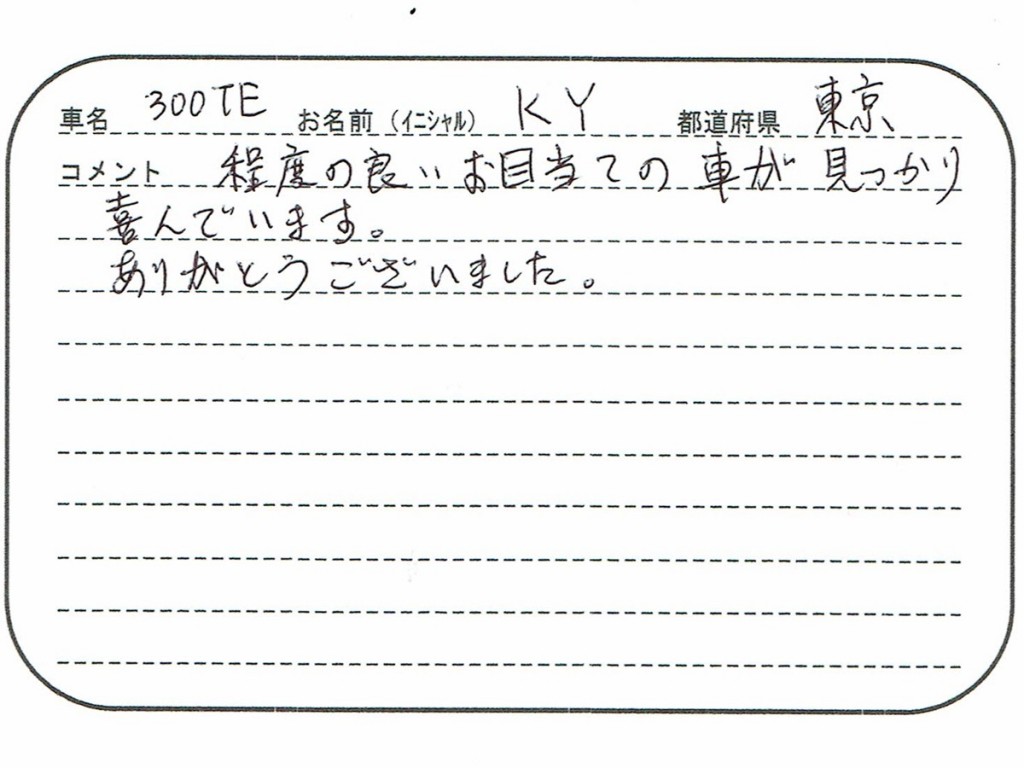 車名 300TE お名前（イニシャル） KY 都道府県 東京
コメント 程度の良いお目当ての車が見つかり
喜んでいます。
ありがとうございました。